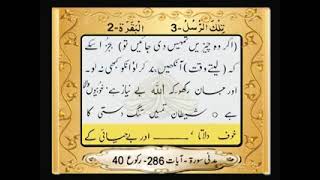 تِلْكَ الرُّسُلُ -3 اَلْبَقَرَة -2
(اگر وہ چیزیں تمہیں دی جائیں تو) بجُز اسکے
کہ (لیتے وقت) آنکھیں بند کر لو انکو کبھی نہ لو۔
اور جان رکھو کہ اللہ بے نیاز ہے خوبیوں
شیطان تمہیں تنگ دستی کا
خوف دلاتا اور بے حیائی کے
مدنی سورۃ - آیات 286- رکوع 40